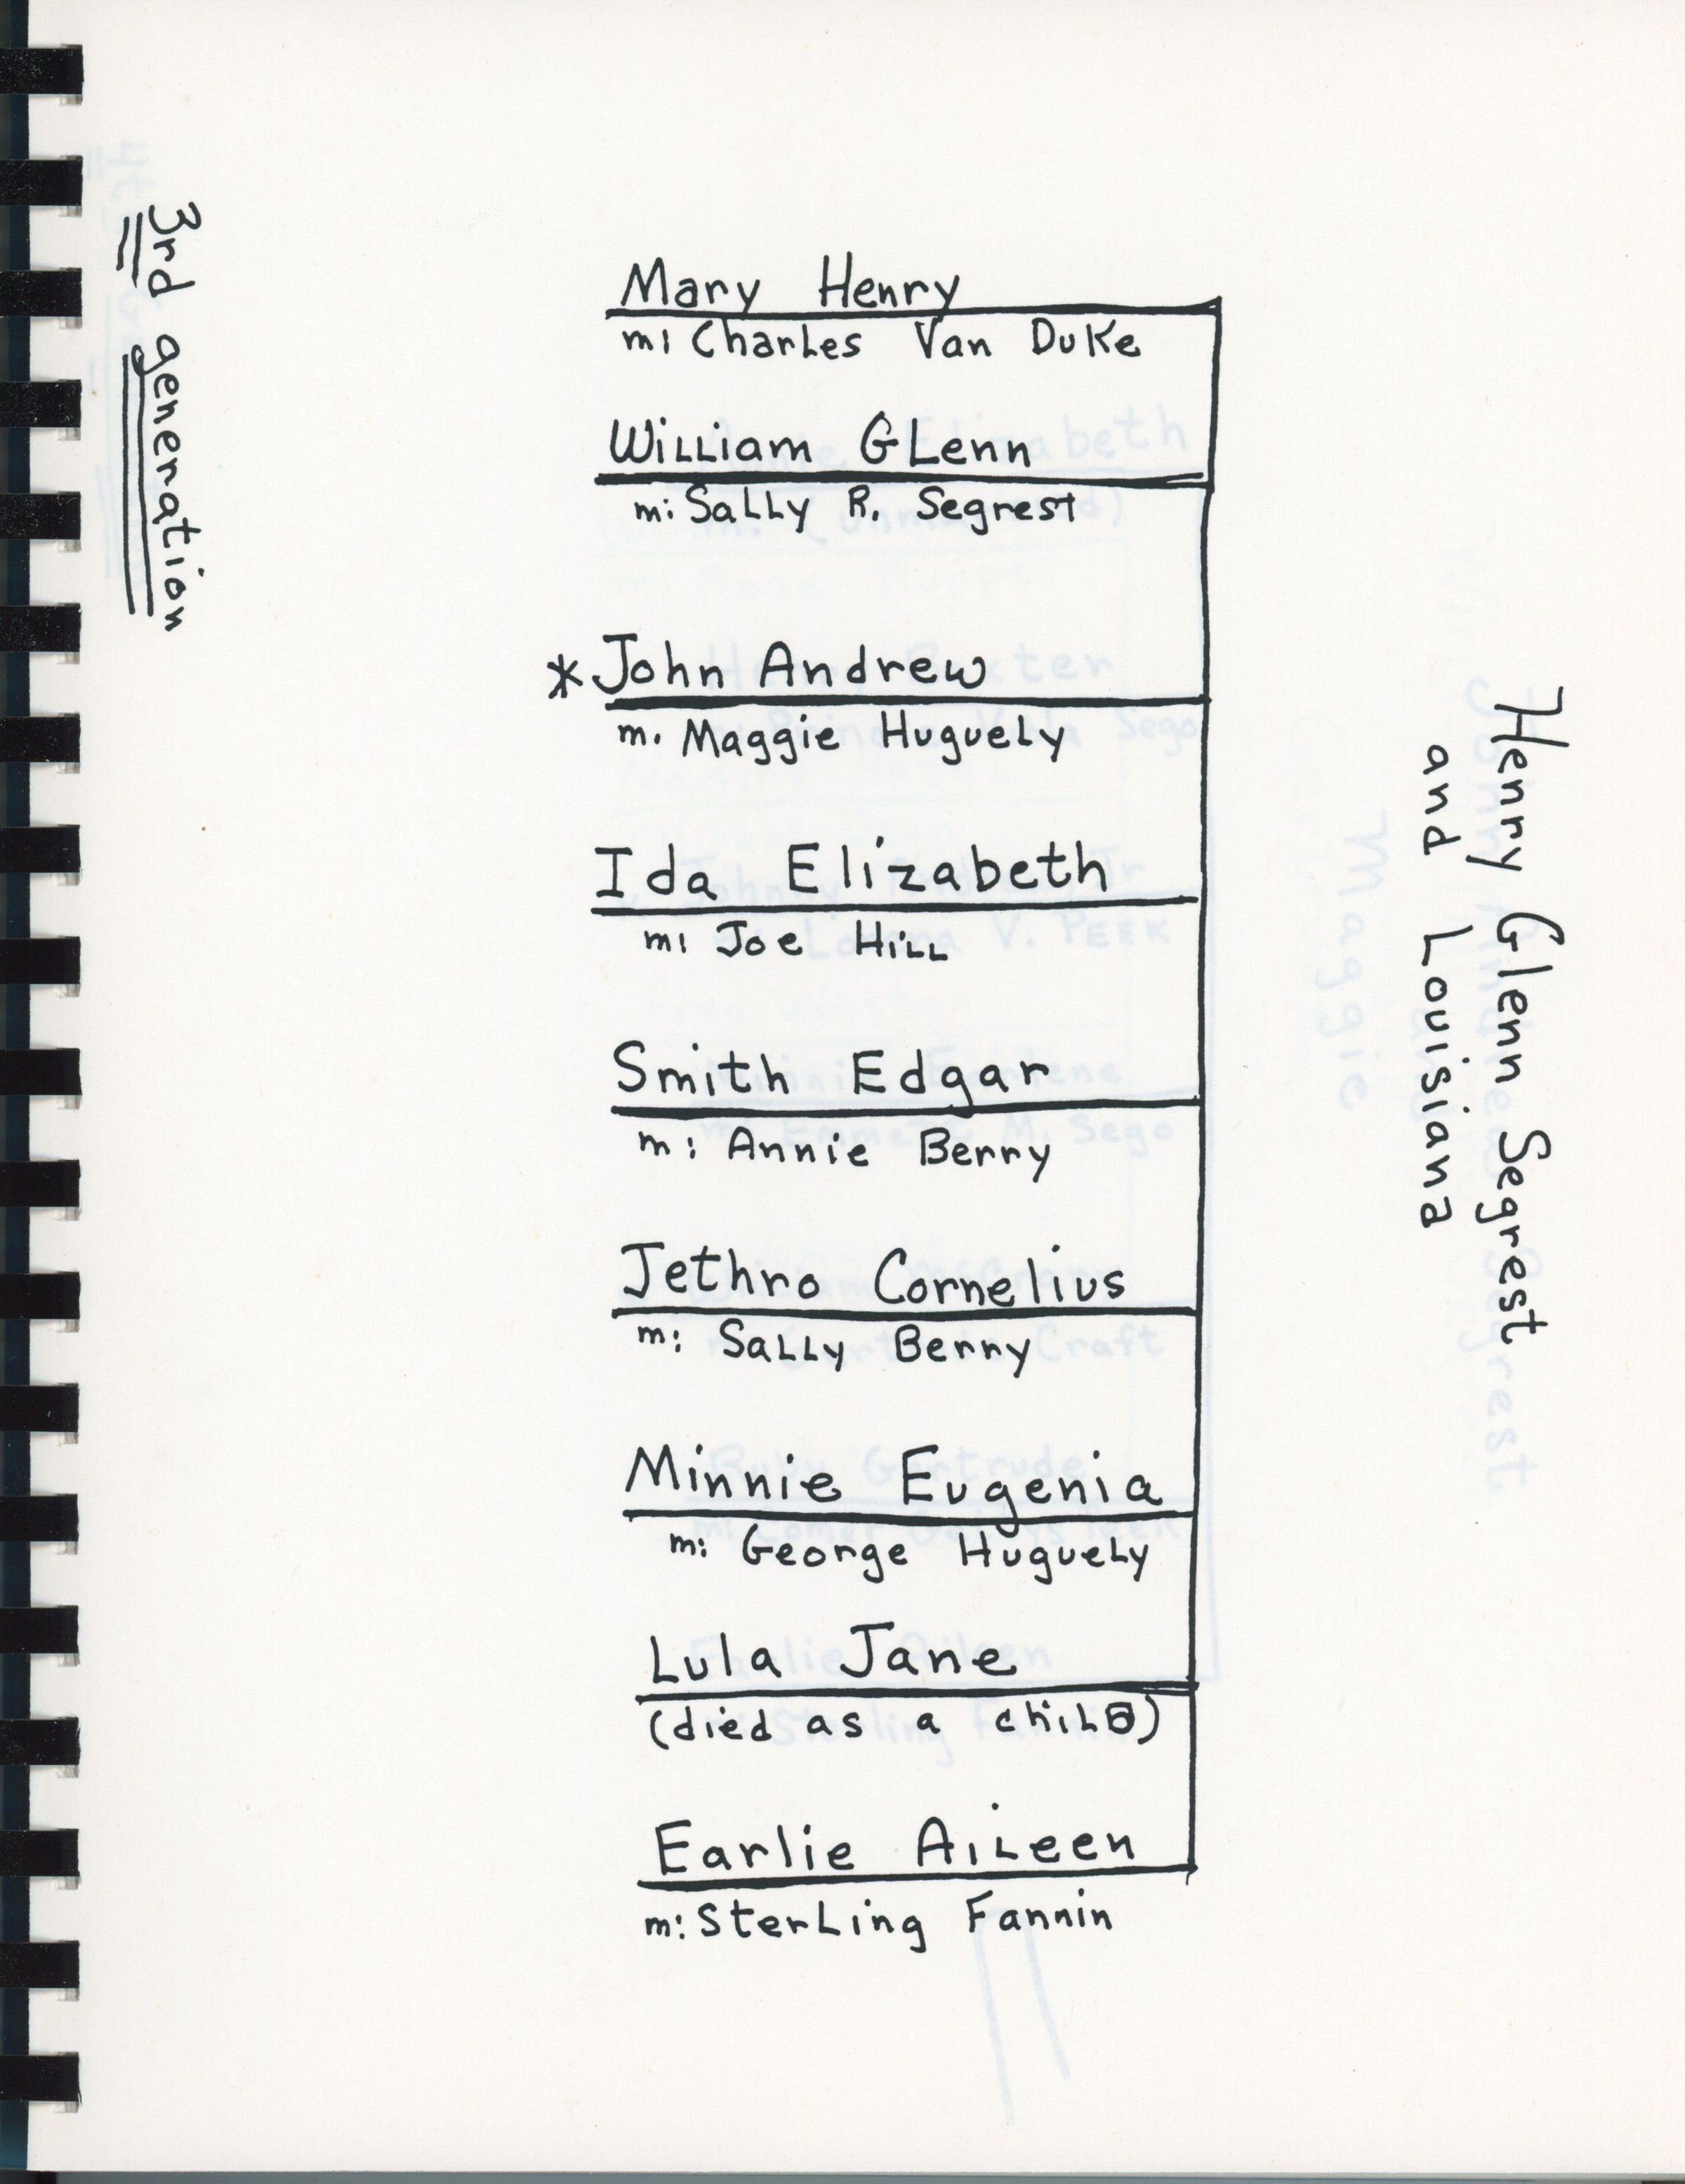 3rd generation
Henry Glenn Segrest
and Louisiana
Mary Henry
m: Charles Van Duke
William Glenn
m: Sally R. Segrest
*John Andrew
m. Maggie Huguely
Ida Elizabeth
m: Joe Hill
Smith Edgar
m: Annie Berry
Jethro Cornelius
m: Sally Berry
Minnie Eugenia
m: George Huguely
Lula Jane
(died as a child)
Earlie Aileen
m: Sterling Fannin